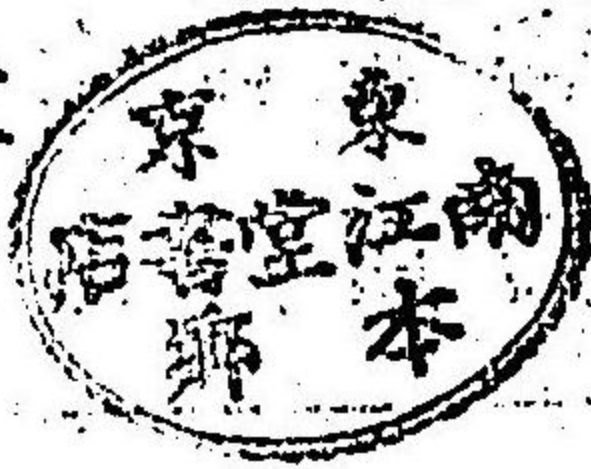 東京
南江堂書店
本郷